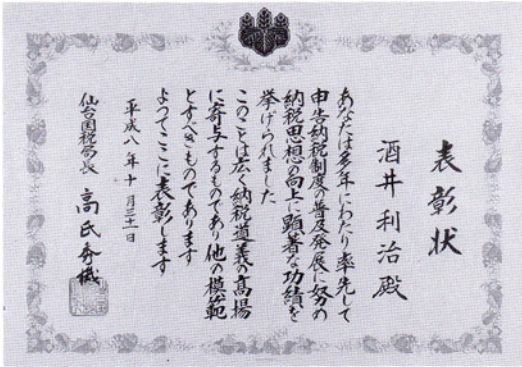 表彰状
酒井利治殿
あなたは多年にわたり率先して
申告納税制度の普及発展に努め
納税思想の向上に顕著な功績を
挙げられました
このことは広く納税道義の高揚
に寄与するものであり他の模範
とすべきものであります
よってここに表彰します
平成八年十月三十一日
仙台国税局長 高氏秀機